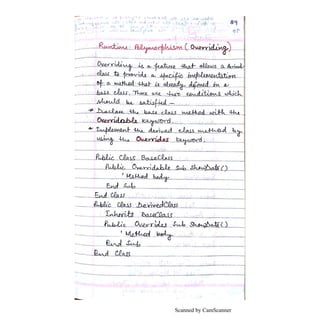 Runtime Polymorphism (Overriding)
Overriding is a feature that allows a derived
class to provide a specific implementation
of a method that is already defined in a
base class. There are two conditions which
should be satisfied -
* Declare the base class method with the
Overridable keyword.
* Implement the derived class method by
using the Overrides keyword.
Public Class BaseClass
Public Overridable Sub ShowData()
' Method body
End Sub
End Class
Public Class DerivedClass
Inherits BaseClass
Public Overrides Sub ShowData()
' Method body
End Sub
End Class
Scanned by CamScanner